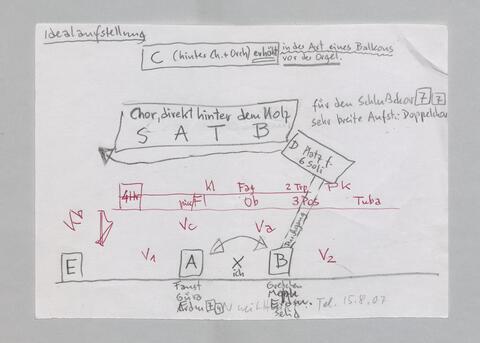 Idealaufstellung
C (hinter Ch. + Orch) erhöht in der Art eines Balkons
vor der Orgel.
Chor, direkt hinter dem Holz
S A T B
für den Schlußchor 7 7
sehr breite Aufst.: Doppelchor
D Platz f.
6 Soli
4Hr Kl Fag 2 Trp PK
picc Fl Ob 3 Pos Tuba
Durchgang
Vc Va
E V1 A X B V2
ich
Faust Gretchen
Tel. 15.8.07